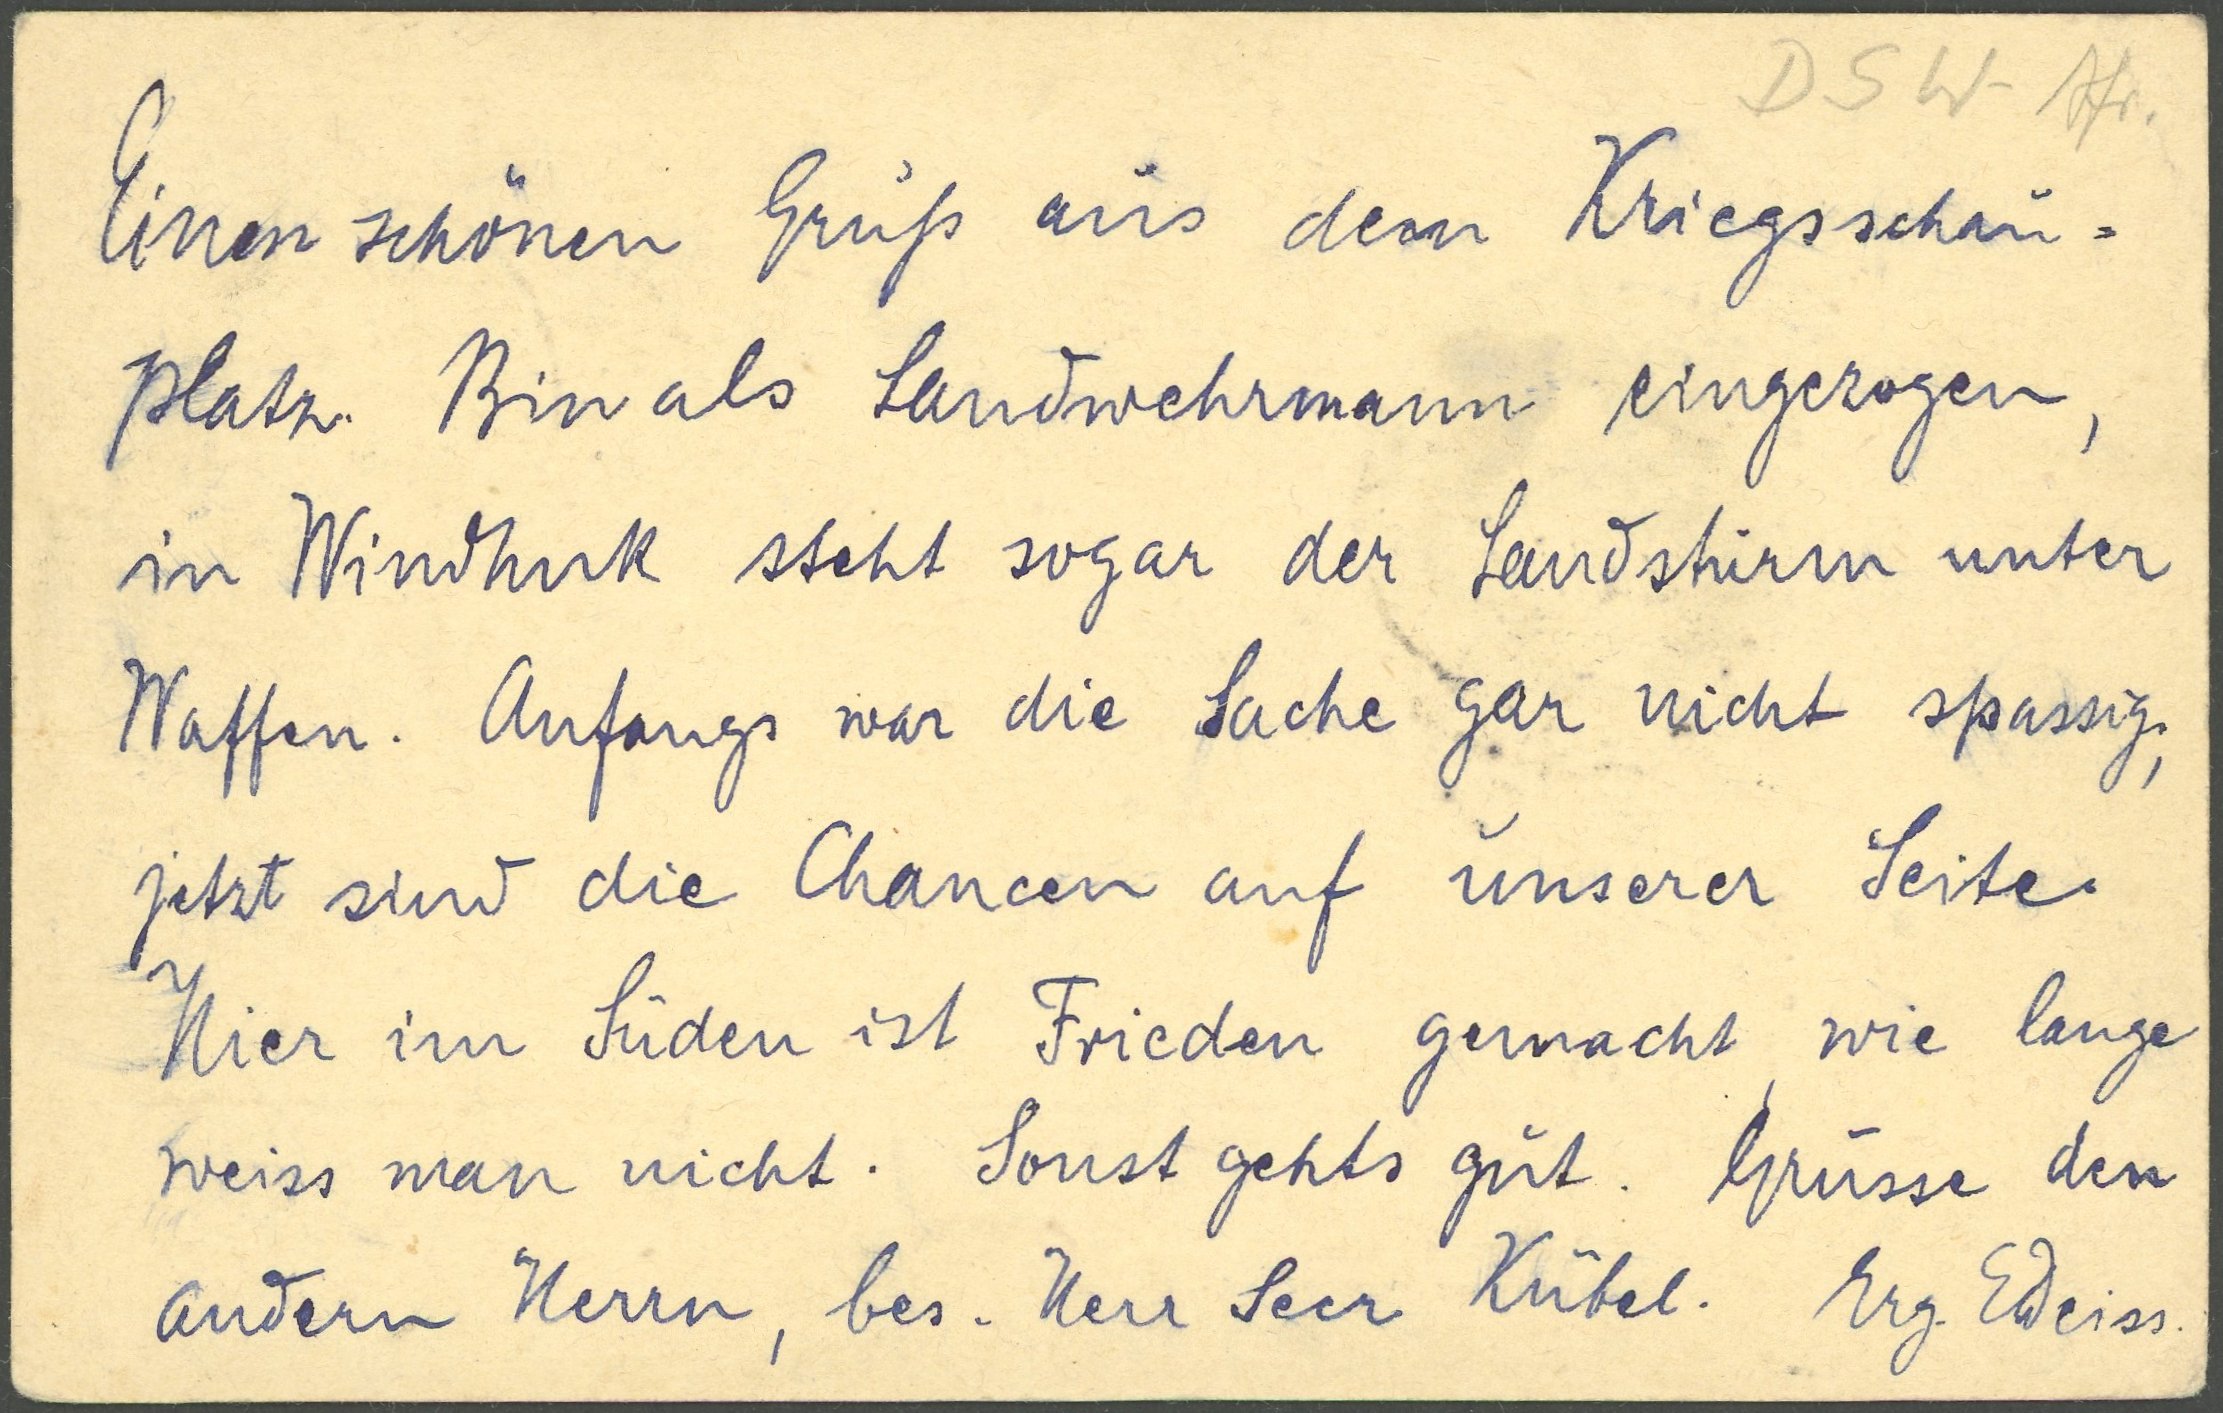 DSW-Afr.
Einen schönen Gruß aus dem Kriegsschau=
platz. Bin als Landwehrmann eingezogen,
in Windhuk steht sogar der Landsturm unter
Waffen. Anfangs war die Sache gar nicht spassig,
jetzt sind die Chancen auf unserer Seite.
Hier im Süden ist Frieden gemacht, wie lange
weiss man nicht. Sonst gehts gut. Grüsse den
andern Herrn, bes. Herr Seer Kübel. Erg. EWeiss.